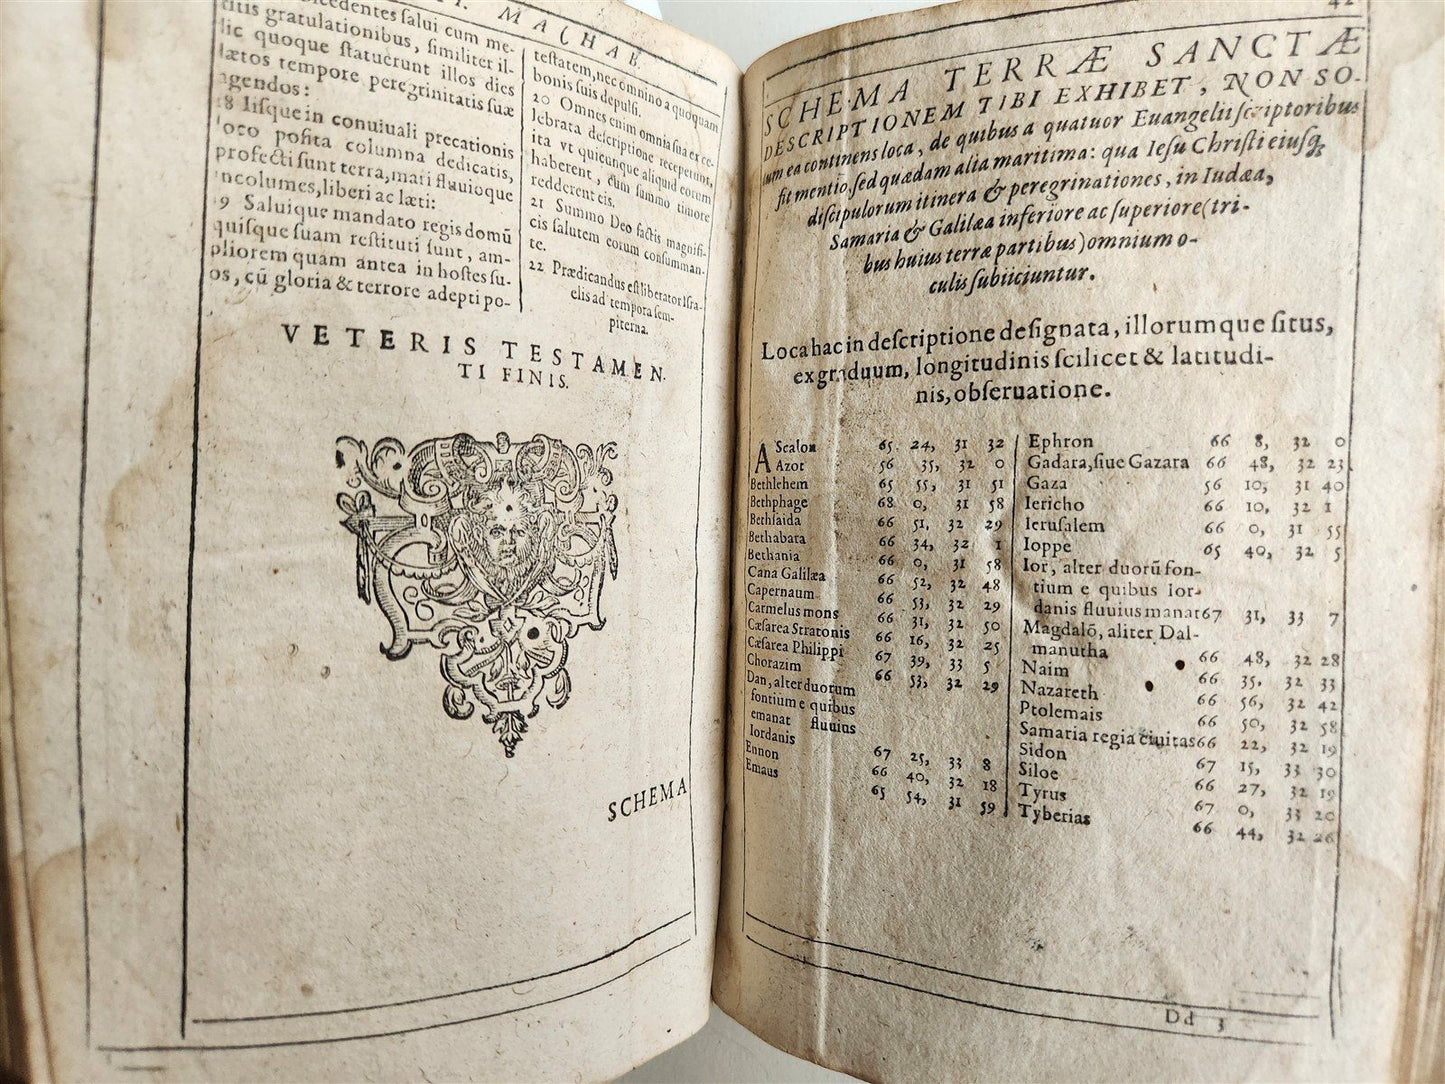 II. MACHAB.
cedentes salui cum me-
titis gratulationibus, ſimiliter il-
lic quoque ſtatuerunt illos dies
lætos tempore peregrinitatis ſuæ
agendos:
18 Iiſque in conuiuali precationis
loco poſita columna dedicatis,
profecti ſunt terra, mari fluuioque
incolumes, liberi ac læti:
19 Saluique mandato regis domū
quiſque ſuam reſtituti ſunt, am-
pliorem quam antea in hoſtes ſu-
os, cū gloria & terrore adepti po-
teſtatem, nec omnino a quoquam
bonis ſuis depulſi.
20 Omnes enim omnia ſua ex ce-
lebrata deſcriptione receperunt,
ita vt quicunque aliquid eorum
haberent, cum ſummo timore
redderent eis.
21 Summo Deo factis magnifi-
cis ſalutem eorum conſumman-
te.
22 Prædicandus eſt liberator Iſra-
elis ad tempora ſem-
piterna.
VETERIS TESTAMEN-
TI FINIS.
SCHEMA
42
SCHEMA TERRÆ SANCTÆ
DESCRIPTIONEM TIBI EXHIBET, NON SO-
lum ea continens loca, de quibus a quatuor Euangelii ſcriptoribus
fit mentio, ſed quædam alia maritima: qua Ieſu Chriſti eiuſq;
diſcipulorum itinera & peregrinationes, in Iudæa,
Samaria & Galilæa inferiore ac ſuperiore (tri-
bus huius terræ partibus) omnium o-
culis ſubiiciuntur.
Loca hac in deſcriptione deſignata, illorumque ſitus,
ex graduum, longitudinis ſcilicet & latitudi-
nis, obſeruatione.
AScalon 65 24, 31 32
Azot 56 35, 32 0
Bethlehem 65 55, 31 51
Bethphage 68 0, 31 58
Bethſaida 66 51, 32 29
Bethabara 66 34, 32 1
Bethania 66 0, 31 58
Cana Galilæa 66 52, 32 48
Capernaum 66 53, 32 29
Carmelus mons 66 31, 32 50
Cæſarea Stratonis 66 16, 32 25
Cæſarea Philippi 67 39, 33 5
Chorazim 66 53, 32 29
Dan, alter duorum
fontium e quibus
emanat fluuius
Iordanis 67 25, 33 8
Ennon 66 40, 32 18
Emaus 65 54, 31 59
Ephron 66 8, 32 0
Gadara, ſiue Gazara 66 48, 32 23
Gaza 56 10, 31 40
Iericho 66 10, 32 1
Ieruſalem 66 0, 31 55
Ioppe 65 40, 32 5
Ior, alter duorū fon-
tium e quibus Ior-
danis fluuius manat 67 31, 33 7
Magdalō, aliter Dal-
manutha 66 48, 32 28
Naim 66 35, 32 33
Nazareth 66 56, 32 42
Ptolemais 66 50, 32 58
Samaria regia ciuitas 66 22, 32 19
Sidon 67 15, 33 30
Siloe 66 27, 32 19
Tyrus 67 0, 33 20
Tyberias 66 44, 32 26
Dd 3